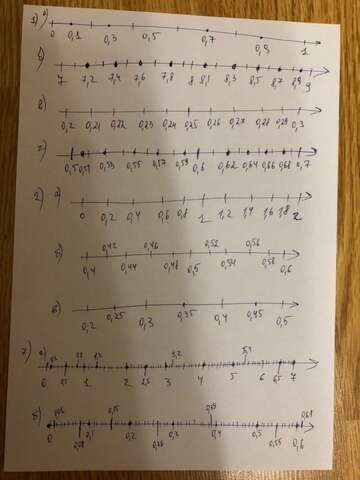 1) а)
0 0,1 0,3 0,5 0,7 0,9 1
б)
7 7,2 7,4 7,6 7,8 8 8,1 8,3 8,5 8,7 8,9 9
в)
0,2 0,21 0,22 0,23 0,24 0,25 0,26 0,27 0,28 0,29 0,3
г)
0,5 0,51 0,53 0,55 0,57 0,59 0,6 0,62 0,64 0,66 0,68 0,7
2) а)
0 0,2 0,4 0,6 0,8 1 1,2 1,4 1,6 1,8 2
б)
0,42 0,46 0,52 0,56
0,4 0,44 0,48 0,5 0,54 0,58 0,6
в)
0,2 0,25 0,3 0,35 0,4 0,45 0,5
3) а)
1,3 3,2
0 1 2 2,5 3 4 5 6 6,5 7
б)
0,15
0 0,1 0,2 0,26 0,3 0,4 0,5 0,55 0,6